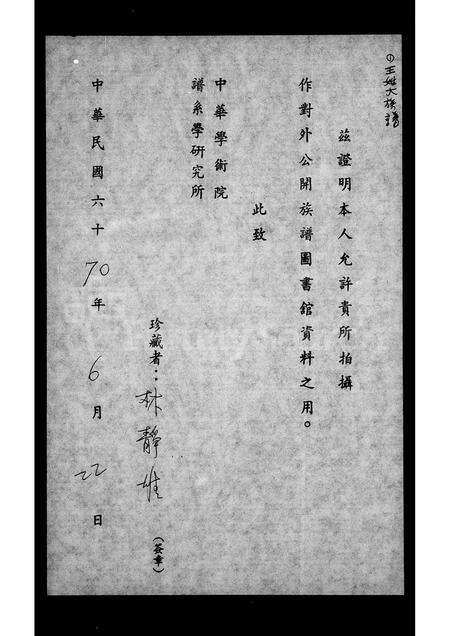 ①王姓大族譜
茲證明本人允許貴所拍攝
作對外公開族譜圖書館資料之用。
此致
中華學術院
譜系學研究所
珍藏者：林靜雄（簽章）
中華民國六十70年6月22日